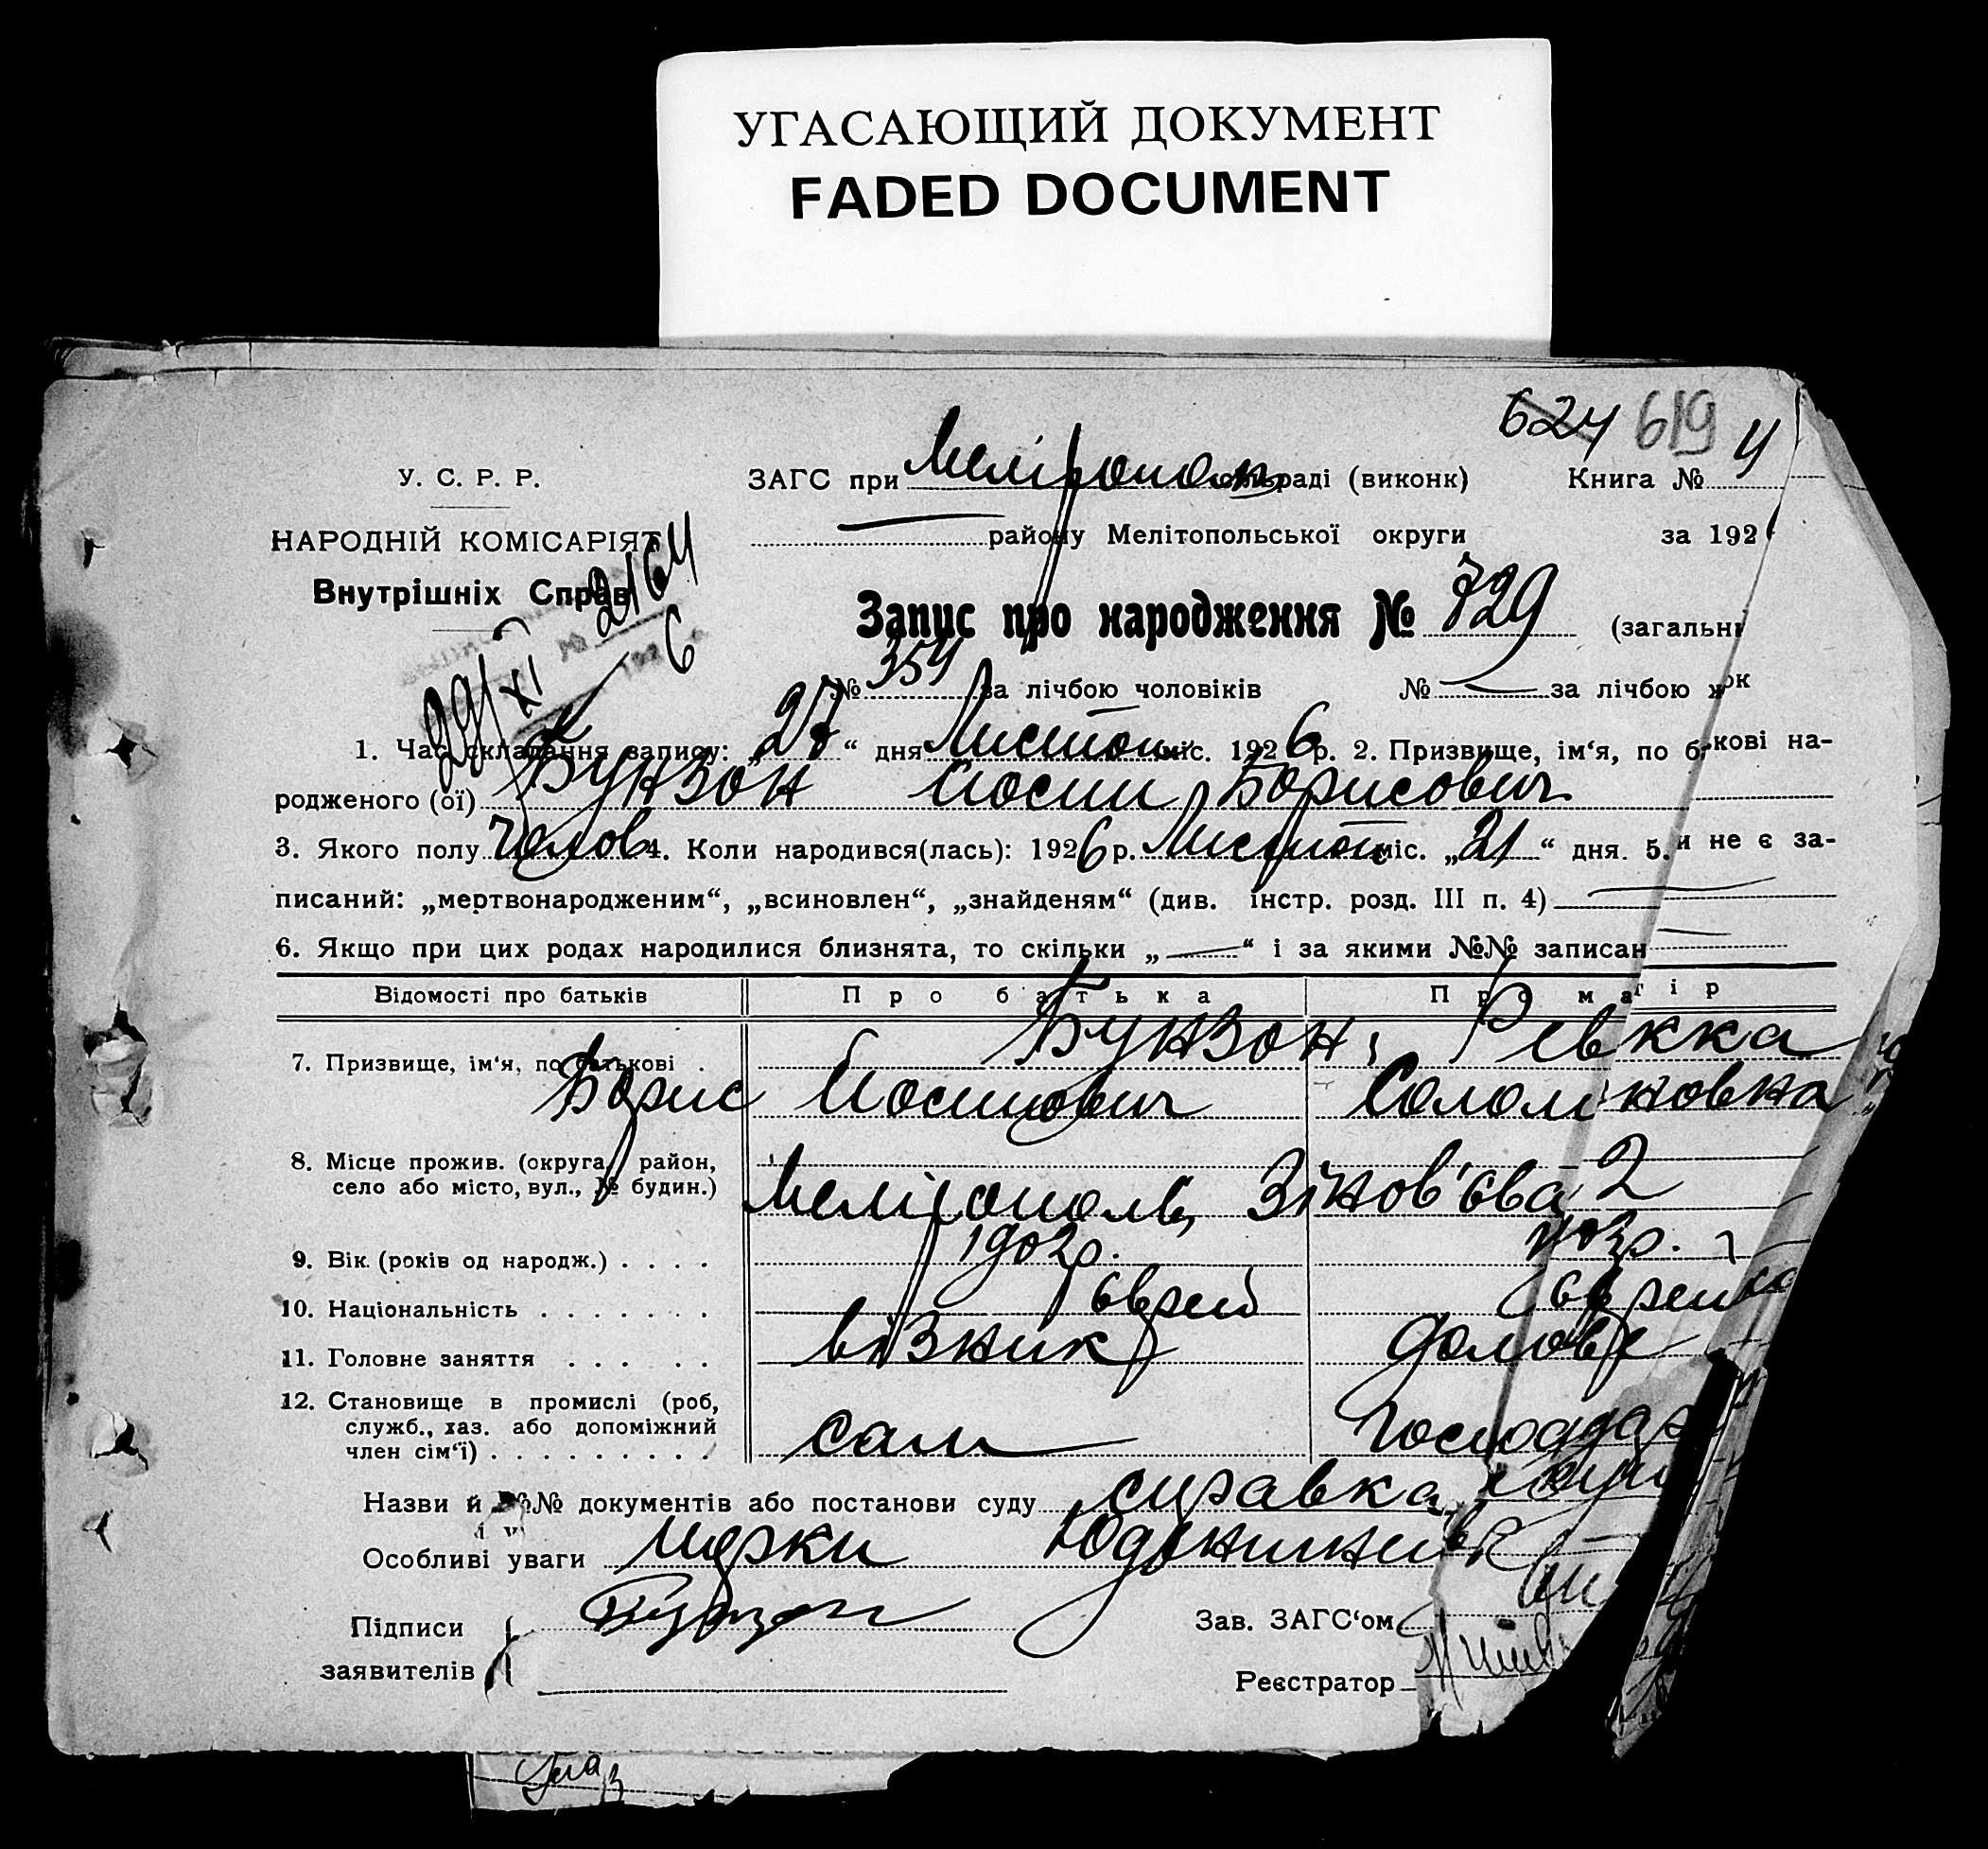 УГАСАЮЩИЙ ДОКУМЕНТ
FADED DOCUMENT
624 619
У. С. Р. Р.
ЗАГС при Мелітопол раді (виконк)
Книга № 4
НАРОДНІЙ КОМІСАРІЯТ
району Мелітопольської округи
за 192
Внутрішніх Справ
2164
6
29/XI
Запис про народження № 729 (загальн
№ 354 за лічбою чоловіків № — за лічбою ж ок
1. Час складання запису: „27“ дня Листоп. міс. 1926 р. 2. Призвище, ім‘я, по б кові на-
родженого (ої) Бунзон Йосип Борисович
3. Якого полу Челов 4. Коли народився(лась): 1926 р. Листоп міс. „21“ дня. 5. и не є за-
писаний: „мертвонародженим“, „всиновлен“, „знайденям“ (див. інстр. розд. III п. 4) —
6. Якщо при цих родах народилися близнята, то скільки „—“ і за якими №№ записан —
Відомості про батьків Про батька Про матір
7. Призвище, ім‘я, по батькові . Бунзон, Ревкка
Борис Йосипович Соломоновна
8. Місце прожив. (округа, район,
село або місто, вул., № будин.) Мелітополь, Зінов'єва 2
9. Вік (років од народж.) . . . . 1902р. 1903р.
10. Національність . . . . . . . Єврей Єврейка
11. Головне заняття . . . . . . візник домов
12. Становище в промислі (роб,
служб., хаз. або допоміжний
член сім‘ї) . . . . . . . . . сам господар
Назви й №№ документів або постанови суду справка
Особливі уваги
Підписи
заявителів
Бунзон
Зав. ЗАГС‘ом
Реєстратор